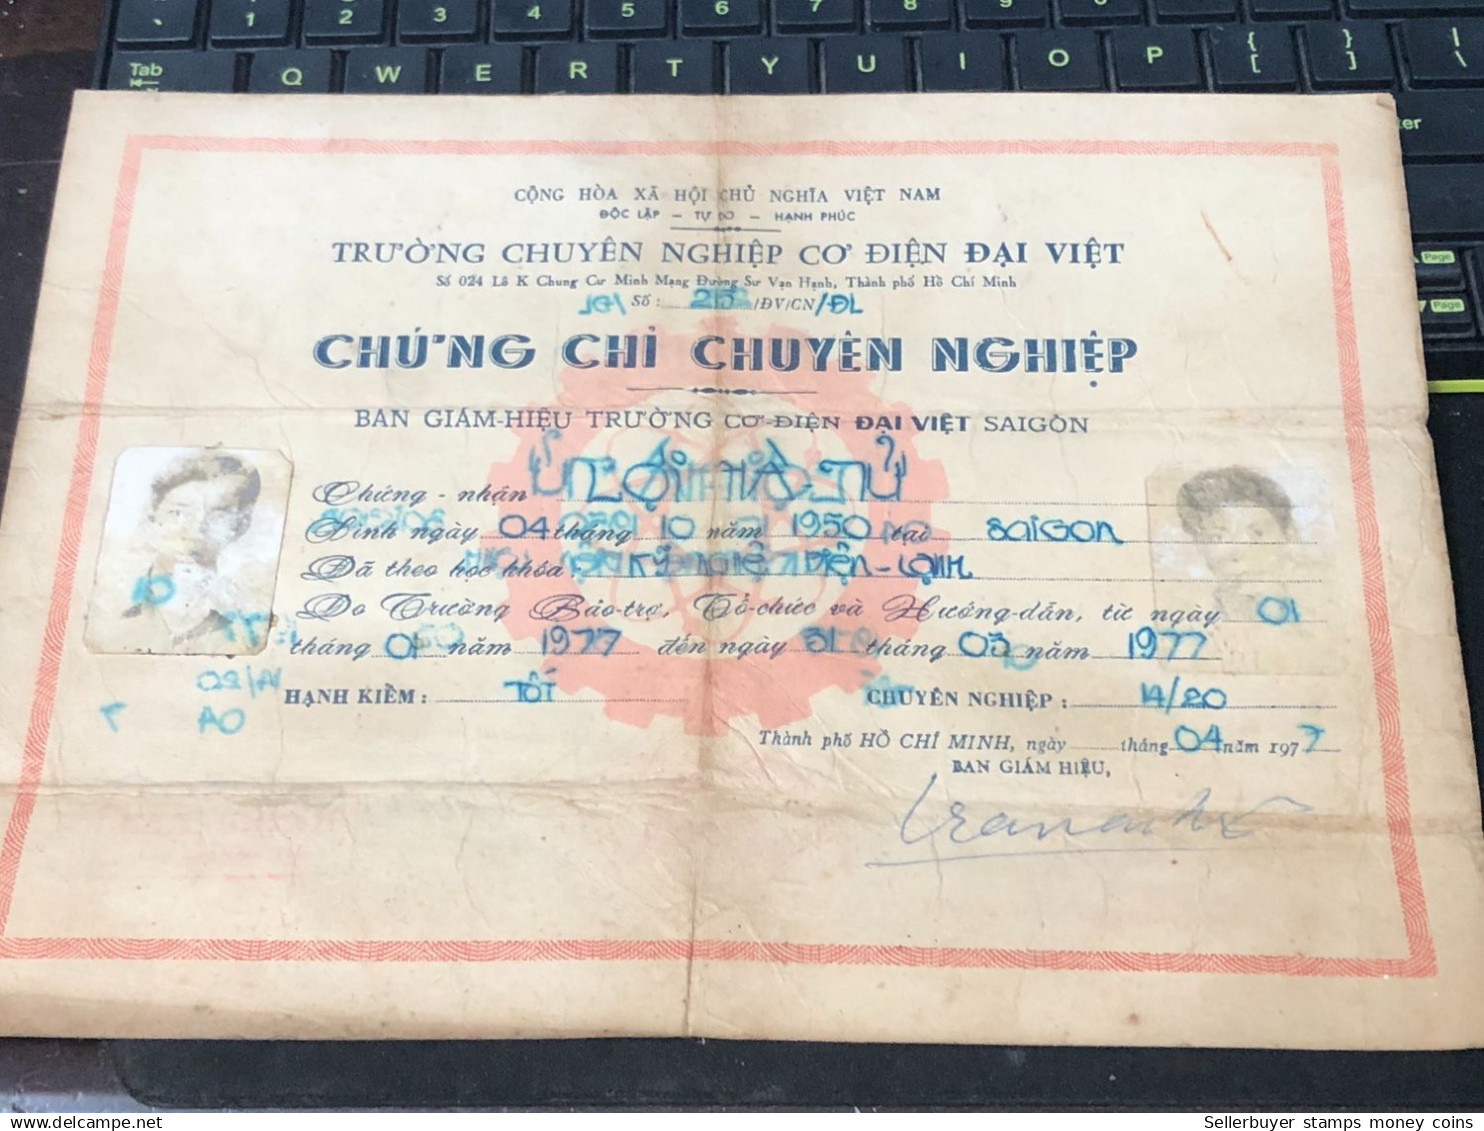 1 2 3 4 5 6 7 8 9 0
Tab Q W E R T Y U I O P { [ } ] | \
CỘNG HÒA XÃ HỘI CHỦ NGHĨA VIỆT NAM
ĐỘC LẬP — TỰ DO — HẠNH PHÚC
TRƯỜNG CHUYÊN NGHIỆP CƠ ĐIỆN ĐẠI VIỆT
Số 024 Lô K Chung Cư Minh Mạng Đường Sư Vạn Hạnh, Thành phố Hồ Chí Minh
Số : /ĐV/CN/ĐL
CHỨNG CHỈ CHUYÊN NGHIỆP
BAN GIÁM-HIỆU TRƯỜNG CƠ-ĐIỆN ĐẠI VIỆT SAIGÒN
Chứng - nhận
Sinh ngày 04 tháng 10 năm 1950 tại SAIGON
Đã theo học khóa KỸ NGHỆ ĐIỆN-LẠNH
Do Trường Bảo-trợ, Tổ-chức và Hướng-dẫn, từ ngày 01
tháng 01 năm 1977 đến ngày 31 tháng 03 năm 1977
HẠNH KIỂM : TỐT CHUYÊN NGHIỆP : 14/20
Thành phố HỒ CHÍ MINH, ngày tháng 04 năm 1977
BAN GIÁM HIỆU,
Page
Page
Sellerbuyer stamps money coins